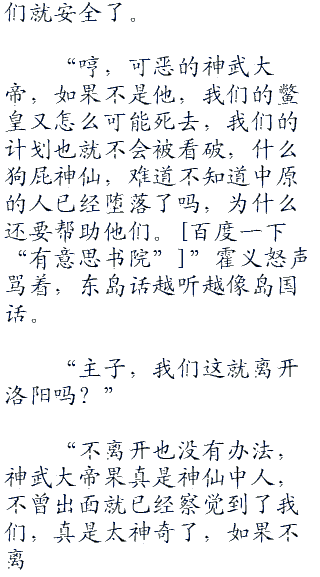 们就安全了。
“哼，可恶的神武大
帝，如果不是他，我们的鳖
皇又怎么可能死去，我们的
计划也就不会被看破，什么
狗屁神仙，难道不知道中原
的人已经堕落了吗，为什么
还要帮助他们。[百度一下
“有意思书院”]”霍义怒声
骂着，东岛话越听越像岛国
话。
“主子，我们这就离开
洛阳吗？”
“不离开也没有办法，
神武大帝果真是神仙中人，
不曾出面就已经察觉到了我
们，真是太神奇了，如果不
离